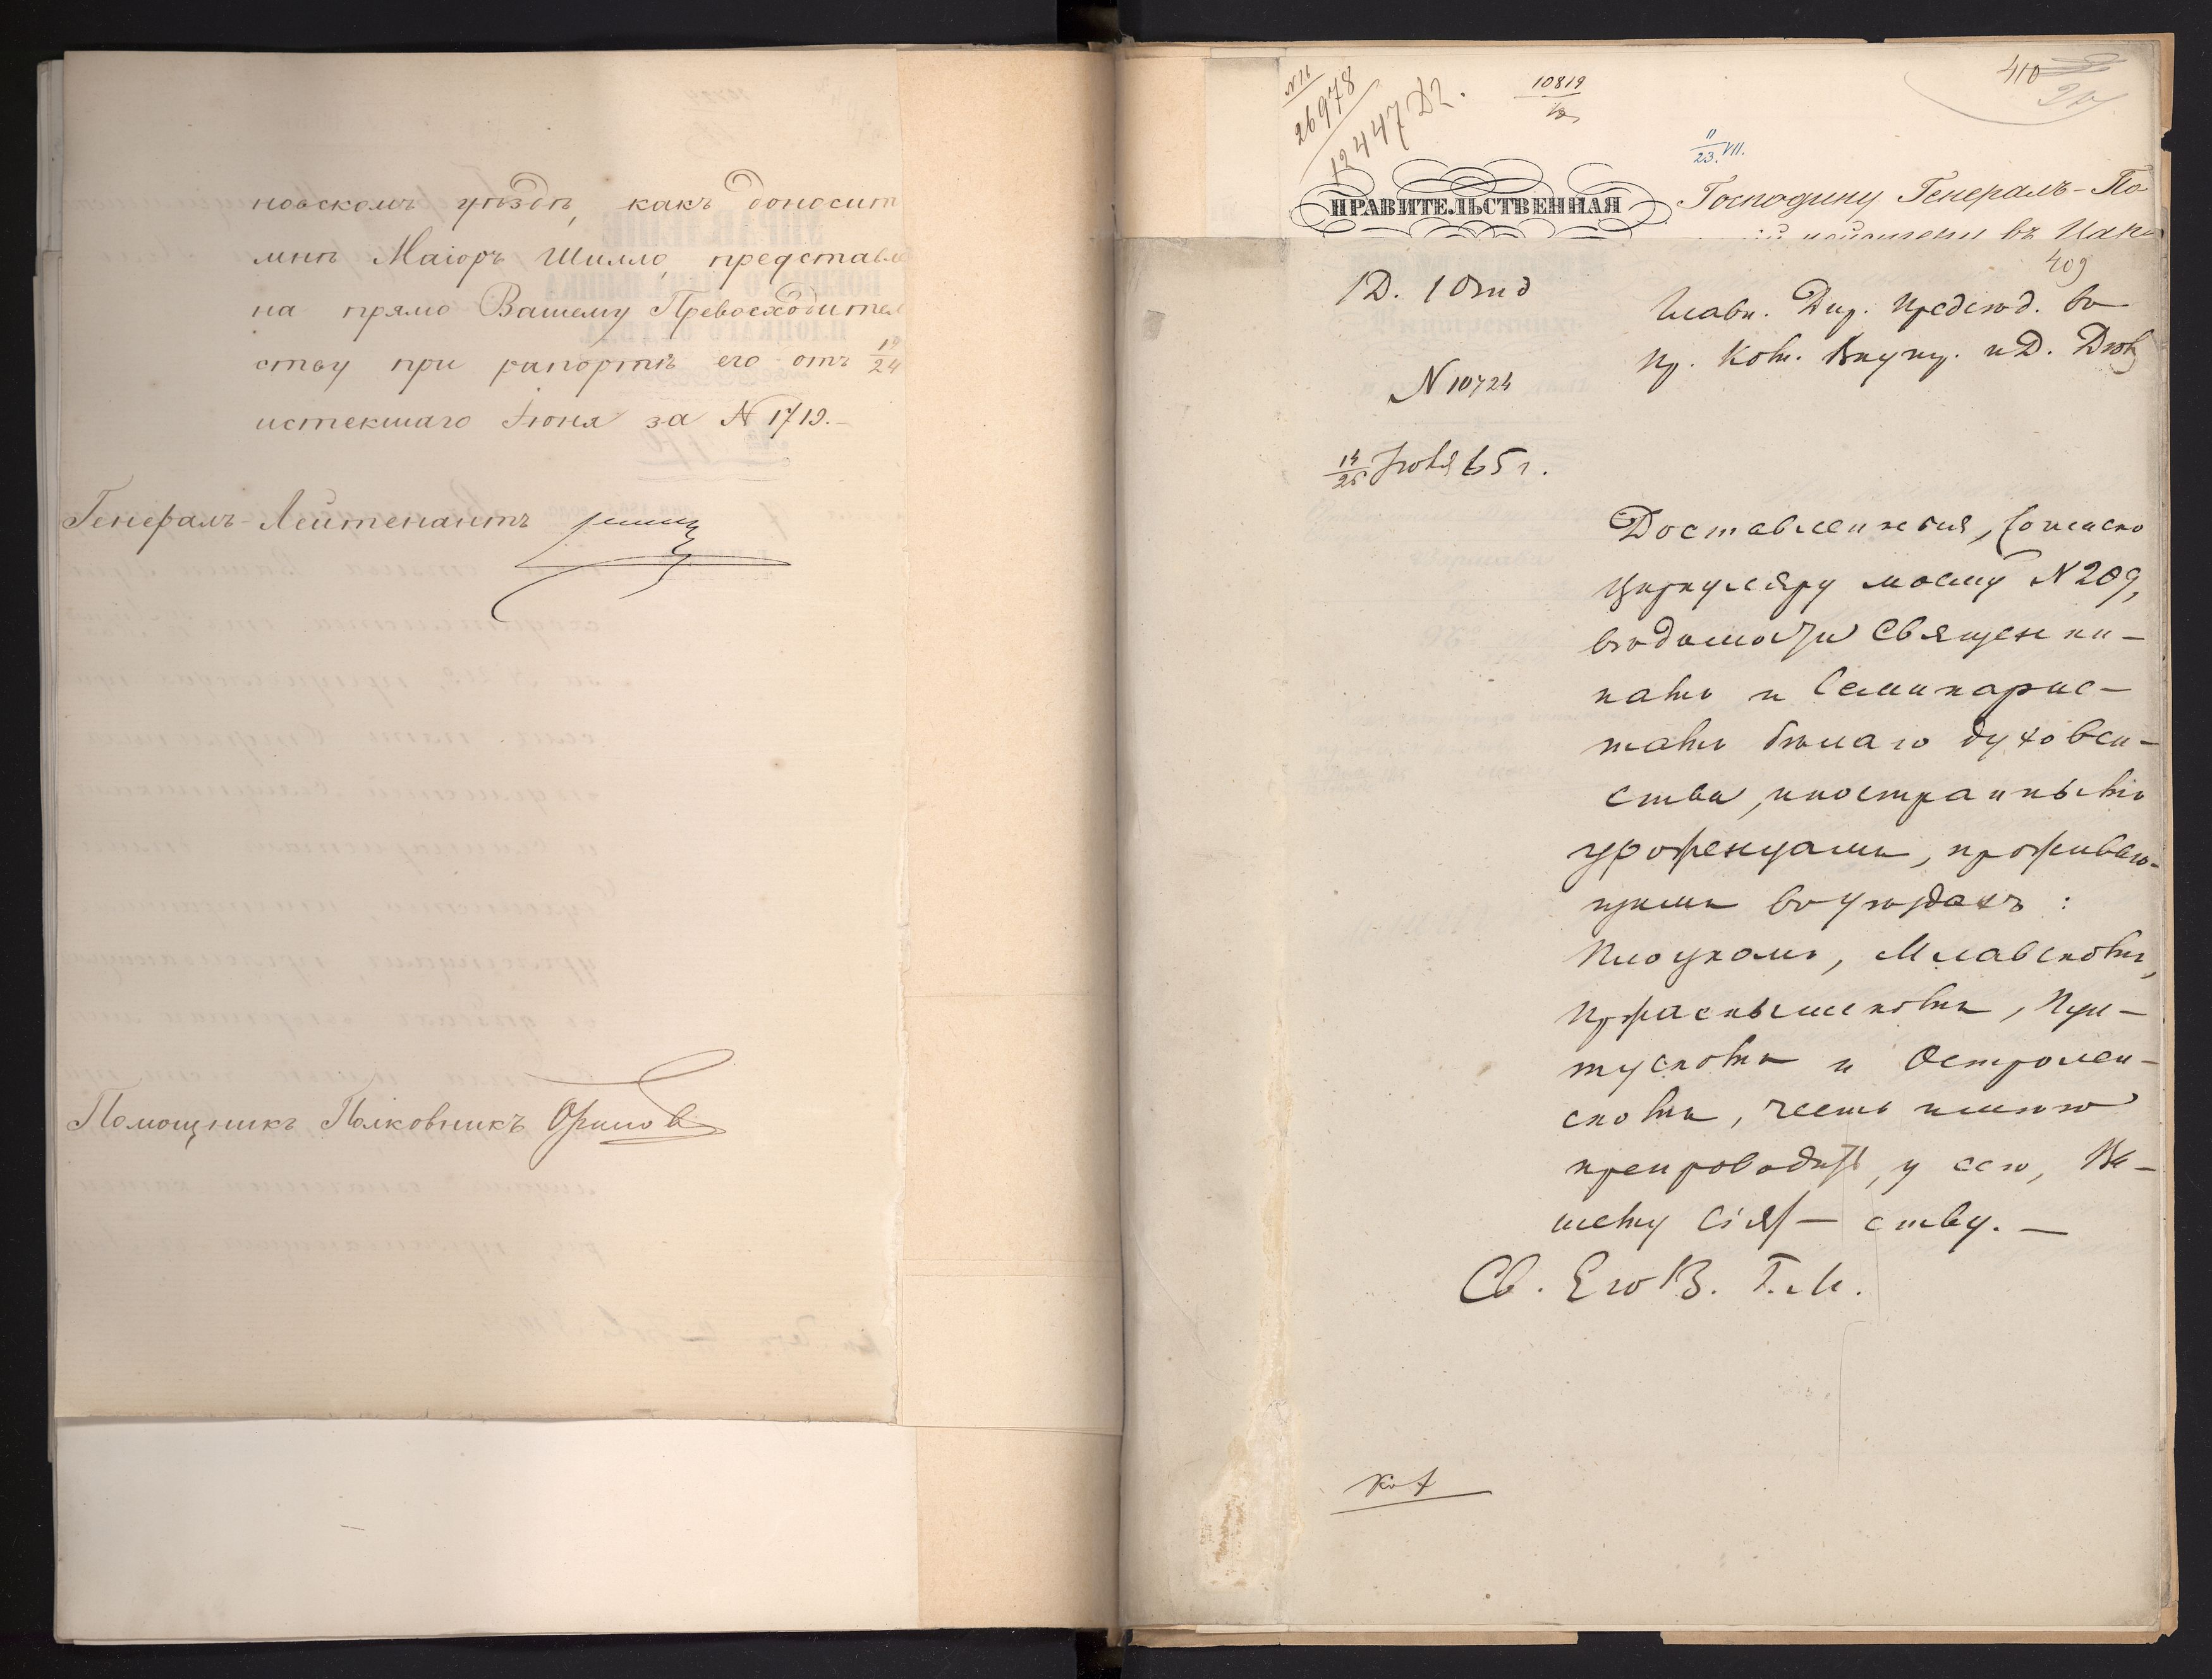 новскомъ уѣздѣ, какъ доносит
мнѣ Маіоръ Шилло, представле
на прямо Вашему Превосходител
ству при рапортѣ его отъ 12/24
истекшаго Іюня за N 1719.-
Генералъ-Лейтенантъ
Помощникъ Полковникъ
N 16
26978
12447 Д2.
10819
11/23.VII.
410
ПРАВИТЕЛЬСТВЕННАЯ
Господину Генералъ-По
въ Цар
409
1 Д. 1 Отд
Главн. Дир. Предсѣд. въ
Пр. Ком. Внутр. и Д. Дѣл
N 10724
14/26 Іюля 65 г.
Доставленныя, согласно
циркуляру моему N 209,
вѣдомости священни-
камъ и семинарис-
тамъ бѣлаго духовен-
ства, иностраннымъ
уроженцами, проживаю-
щими въ уѣздахъ:
Плоцкомъ, Млавскомъ,
Пржаснышскомъ, Пул-
тускомъ и Остролен-
скомъ, честь имѣю
препроводить, у сего, Ва-
шему Сія-ству.-
Св. Его В. Г. М.